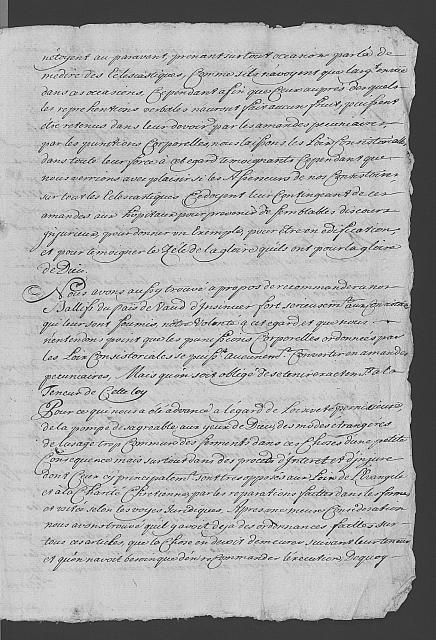 n'étoyent au paravent, prenant sur tout occasion par là de
médire des Eclesiastiques, comme s'ils n'avoyent que l'arg.t en vüe
dans ces occasions, Cependant afin que ceux auprès des quels
les reprehentions verbales n'auront fait aucun fruit, puissent
être retenus dans leur devoir par les amandes pecuniaires,
par les punitions Corporelles, nous laissons les Loix Consistoriales
dans toute leur force à cet egard temoignants Cependant que
nous verrions avec plaisir si les Assesseurs de nos Consistoires
sur tout les Eclesiastiques Cedoyent leur Contingeant de ces
amandes aux hopitaux pour prevenir de semblables discours
injurieux, pour donner un Exemple, pour être en edification,
et pour temoigner le Zele de la gloire qu'ils ont pour la gloire
de Dieu.
Nous avons aussy trouvé à propos de recommander a nos
Ballifs du Païs de Vaud d'insinuer fort serieusem.t aux
qui leur sont soumis notre Volonté à cet egard et que nous
n'entendons point que les punissions Corporelles ordonnées par
les Loix Consistoriales se puiss.t aucunem.t Convertir en amandes
pecuniaires, Mais qu'on soit obligé de se tenir exactem.t a la
Teneur de Cette loy
Pour ce qui nous a été advancé à légard de
de la pompe desagreable aux yeux de Dieu, des modes etrangeres
de l'usage trop Commun des serments dans des Choses d'une petite
Consequence mais surtout dans des procets d'Interet et d'injure
dont Ceux cy principalem.t sont tres opposés aux Loix de l'Evangile
et a la Charité Chretienne, par les reparations faittes dans les formes
et voites selon les voyes Juridiques. Apres une meure Consideration
nous avons trouvé qu'il y avoit deja des ordonnances faittes sur
tous ces articles, que la Chose en devoit demeurer, suivant leur teneur
et qu'on n'avoit besoin que d'en recommander l'execution, Dequoy